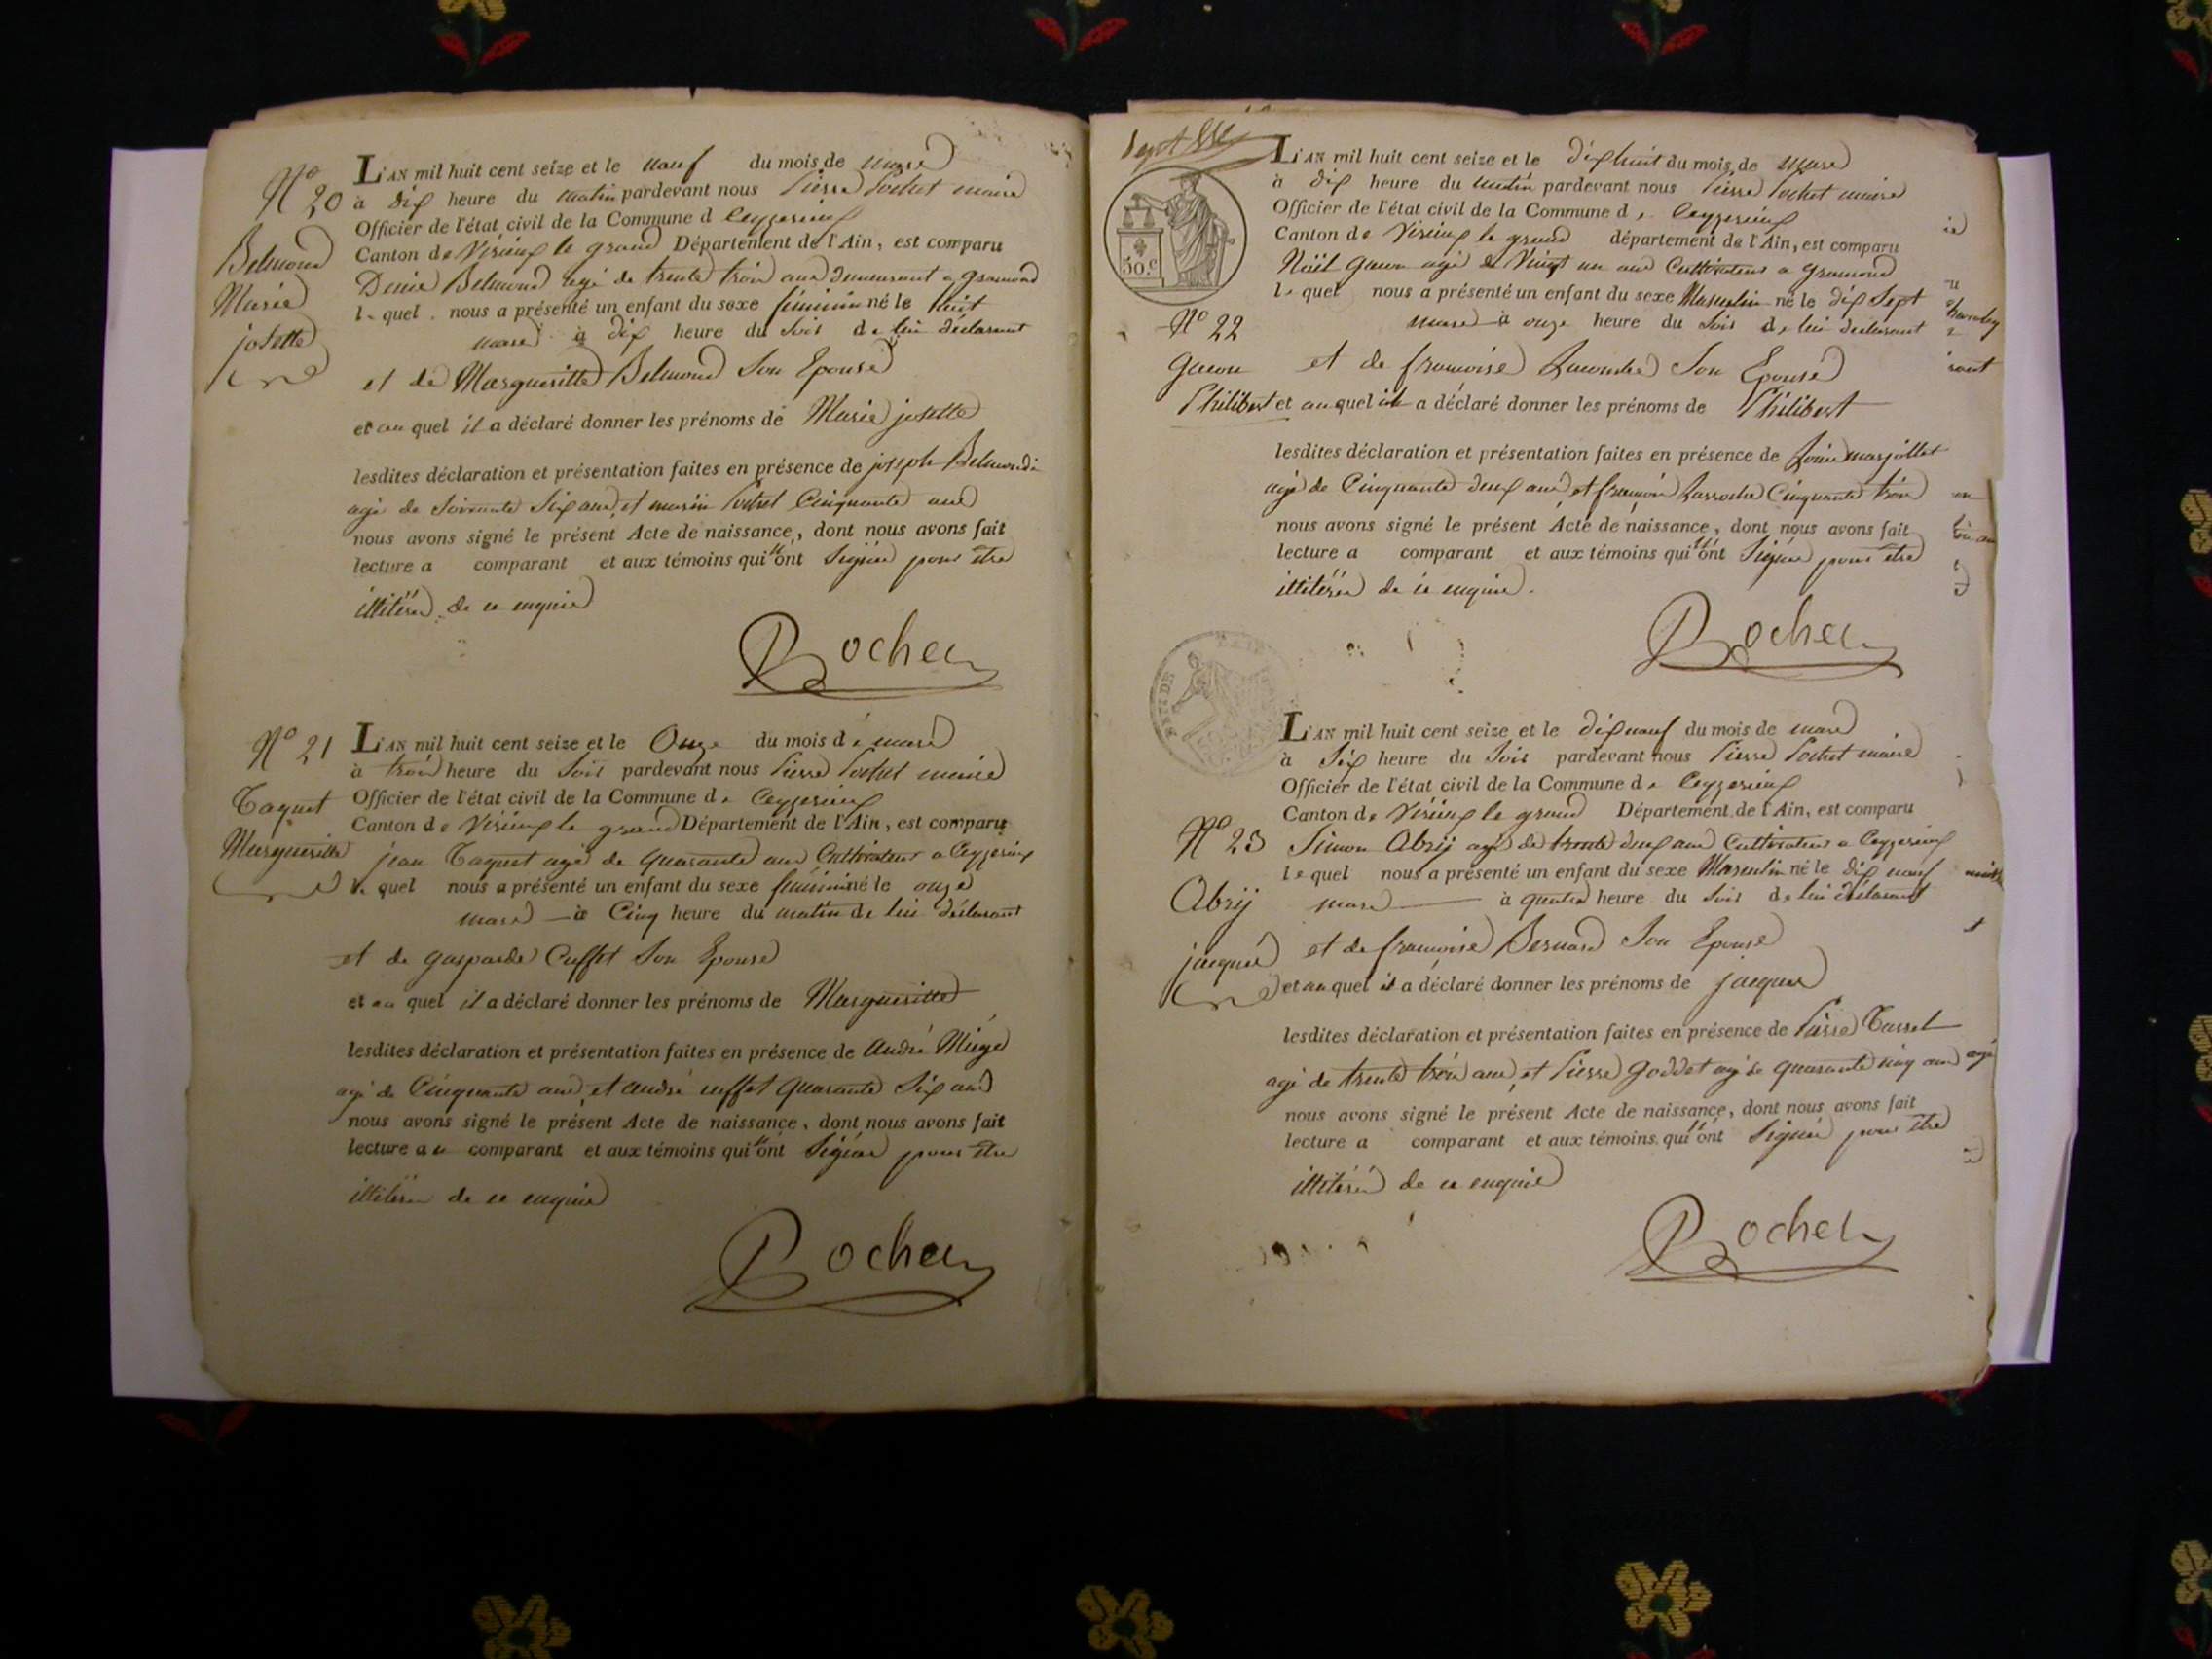 N° 20
Belmond
Marie
josette
L'AN mil huit cent seize et le neuf du mois de mars
à dix heure du matin pardevant nous Pierre Pochet maire
Officier de l'état civil de la Commune d Ceyzerieux
Canton de Virieux le grand Département de l'Ain, est comparu
Denis Belmond agé de trente trois ans demeurant a gramond
lequel nous a présenté un enfant du sexe féminin né le huit
mars à dix heure du soir de lui déclarant
et de Margueritte Belmond Son Epouse
et au quel il a déclaré donner les prénoms de Marie josette
lesdites déclaration et présentation faites en présence de joseph Belmond
agé de Soixante Six ans, et Pochet Cinquante ans
nous avons signé le présent Acte de naissance, dont nous avons fait
lecture a comparant et aux témoins qui n'ont Signés pour être
illitérés de ce enquis
Pochet
N° 21
Taquet
Margueritte
L'AN mil huit cent seize et le Onze du mois de mars
à trois heure du Soir pardevant nous Pierre Pochet maire
Officier de l'état civil de la Commune de Ceyzerieux
Canton de Virieux le grand Département de l'Ain, est comparu
jean Taquet agé de quarante ans Cultivateur a Ceyzerieux
le quel nous a présenté un enfant du sexe féminin né le onze
mars à Cinq heure du matin de lui déclarant
et de gasparde Cuffet Son Epouse
et au quel il a déclaré donner les prénoms de Margueritte
lesdites déclaration et présentation faites en présence de André Miège
agé de Cinquante ans, et andré cuffet quarante Six ans
nous avons signé le présent Acte de naissance, dont nous avons fait
lecture au comparant et aux témoins qui n'ont Signés pour être
illitérés de ce enquis
Pochet
Sept
50.c
N° 22
gacon
Philibert
L'AN mil huit cent seize et le dix huit du mois de mars
à dix heure du matin pardevant nous Pierre Pochet maire
Officier de l'état civil de la Commune de Ceyzerieux
Canton de Virieux le grand département de l'Ain, est comparu
Noël gacon agé de Vingt un ans Cultivateur a gramond
lequel nous a présenté un enfant du sexe Masculin né le dix Sept
mars à onze heure du Soir de lui déclarant
et de françoise Lacombe Son Epouse
et au quel il a déclaré donner les prénoms de Philibert
lesdites déclaration et présentation faites en présence de marjollet
agé de Cinquante deux ans et françois Larroche Cinquante trois
nous avons signé le présent Acte de naissance, dont nous avons fait
lecture a comparant et aux témoins qui n'ont Signés pour être
illitérés de ce enquis.
Pochet
N° 23
Abrij
jacques
L'AN mil huit cent seize et le dix neuf du mois de mars
à Six heure du Soir pardevant nous Pierre Pochet maire
Officier de l'état civil de la Commune de Ceyzerieux
Canton de Virieux le grand Département de l'Ain, est comparu
Simon Abrij agé de trente deux ans Cultivateur a Ceyzerieux
lequel nous a présenté un enfant du sexe Masculin né le dix neuf
mars à quatre heure du Soir de lui déclarant
et de françoise Bernard Son Epouse
et au quel il a déclaré donner les prénoms de jacques
lesdites déclaration et présentation faites en présence de Pierre Tassel
agé de trente trois ans, et Pierre goddet agé de quarante cinq ans
nous avons signé le présent Acte de naissance, dont nous avons fait
lecture a comparant et aux témoins qui n'ont Signés pour être
illitérés de ce enquis
Pochet